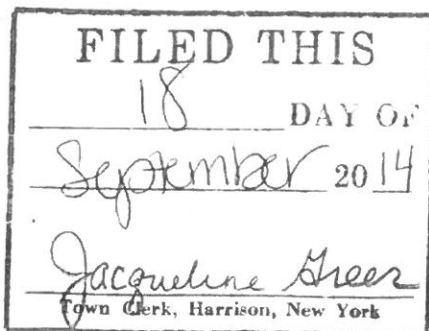 FILED THIS
18 DAY OF
September 20 14
Jacqueline Greer
Town Clerk, Harrison, New York